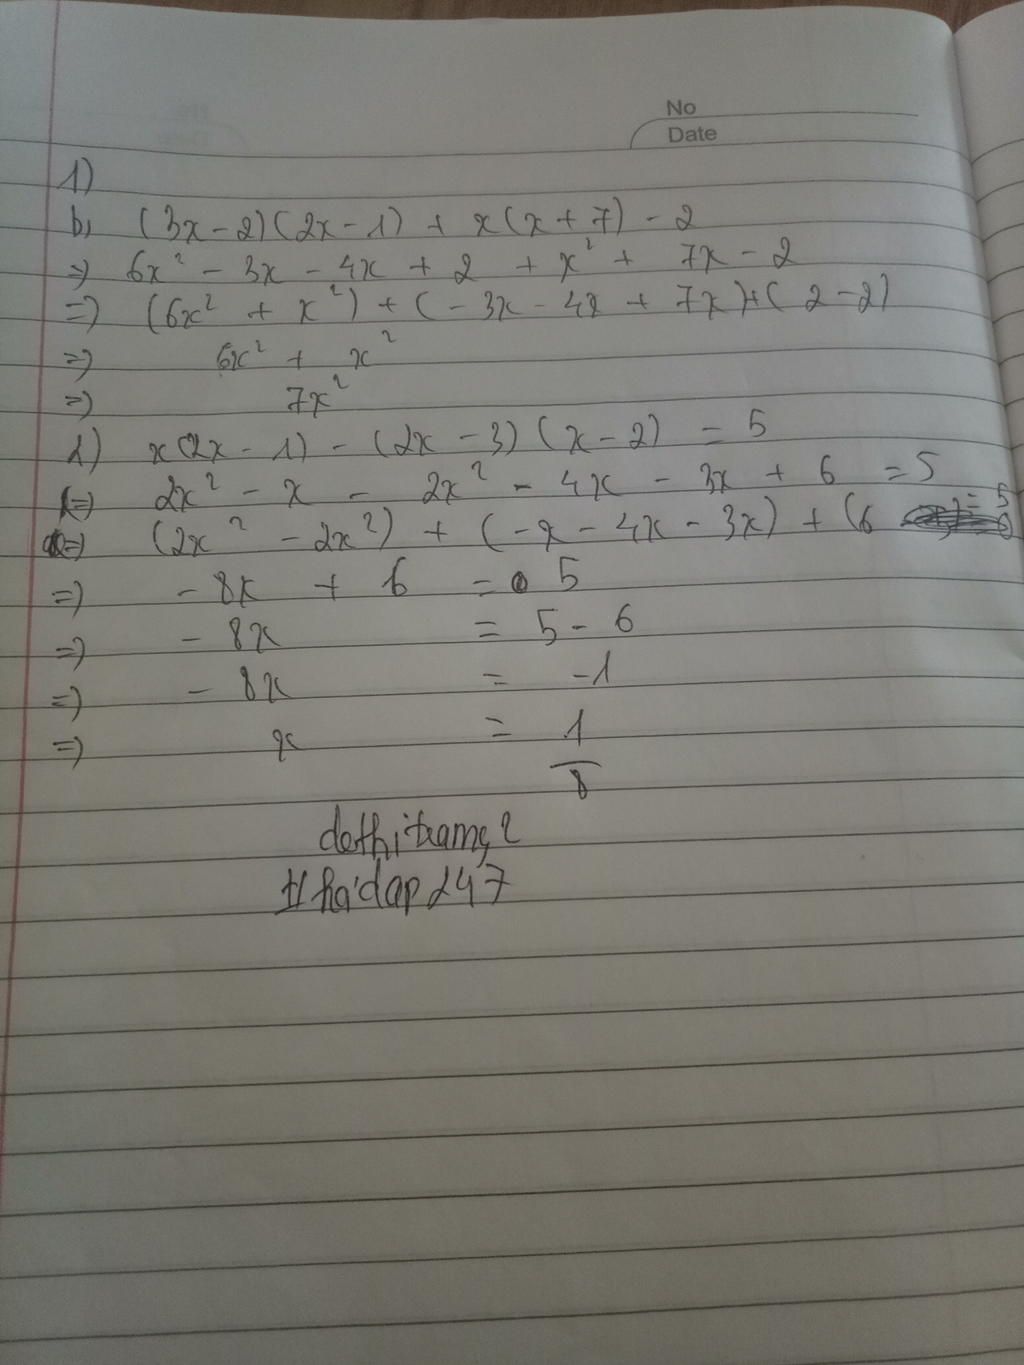 No
Date
1)
b, (3x-2)(2x-1) + x(x+7) - 2
=> 6x² - 3x - 4x + 2 + x² + 7x - 2
=> (6x² + x²) + (-3x - 4x + 7x) + (2-2)
=> 6x² + x²
=> 7x²
2) x(2x-1) - (2x-3)(x-2) = 5
=> 2x² - x - 2x² - 4x - 3x + 6 = 5
=> (2x² - 2x²) + (-x - 4x - 3x) + (6 ) = 5
=> -8x + 6 = 5
=> -8x = 5 - 6
=> -8x = -1
=> x = 1/8
dothitrang2
#hoidap247